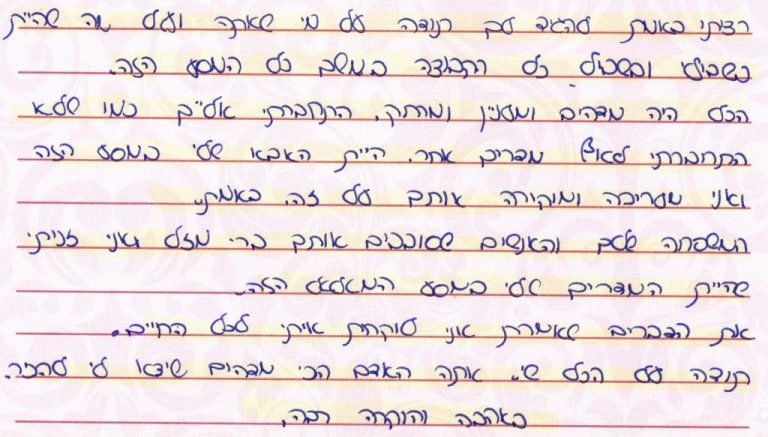 רציתי באמת להגיד לך תודה על מי שאתה ועל מה שהיית
בשבילי ובשביל כל הקבוצה במשך כל המסע הזה.
הכל היה מדהים ומעניין ומרתק. התחברתי אליך כמו שלא
התחברתי לאף מדריך אחר. היית האבא שלי במסע הזה
ואני מעריכה ומוקירה אותך על זה. באמת.
המשפחה שלך והאנשים שסובבים אותך ברי מזל ואני זכיתי
שהיית המדריך שלי במסע המטלטל הזה.
את הדברים שאמרת אני לוקחת איתי לכל החיים.
תודה על הכל שי. אתה האדם הכי מדהים שיצא לי להכיר.
באהבה והוקרה רבה,